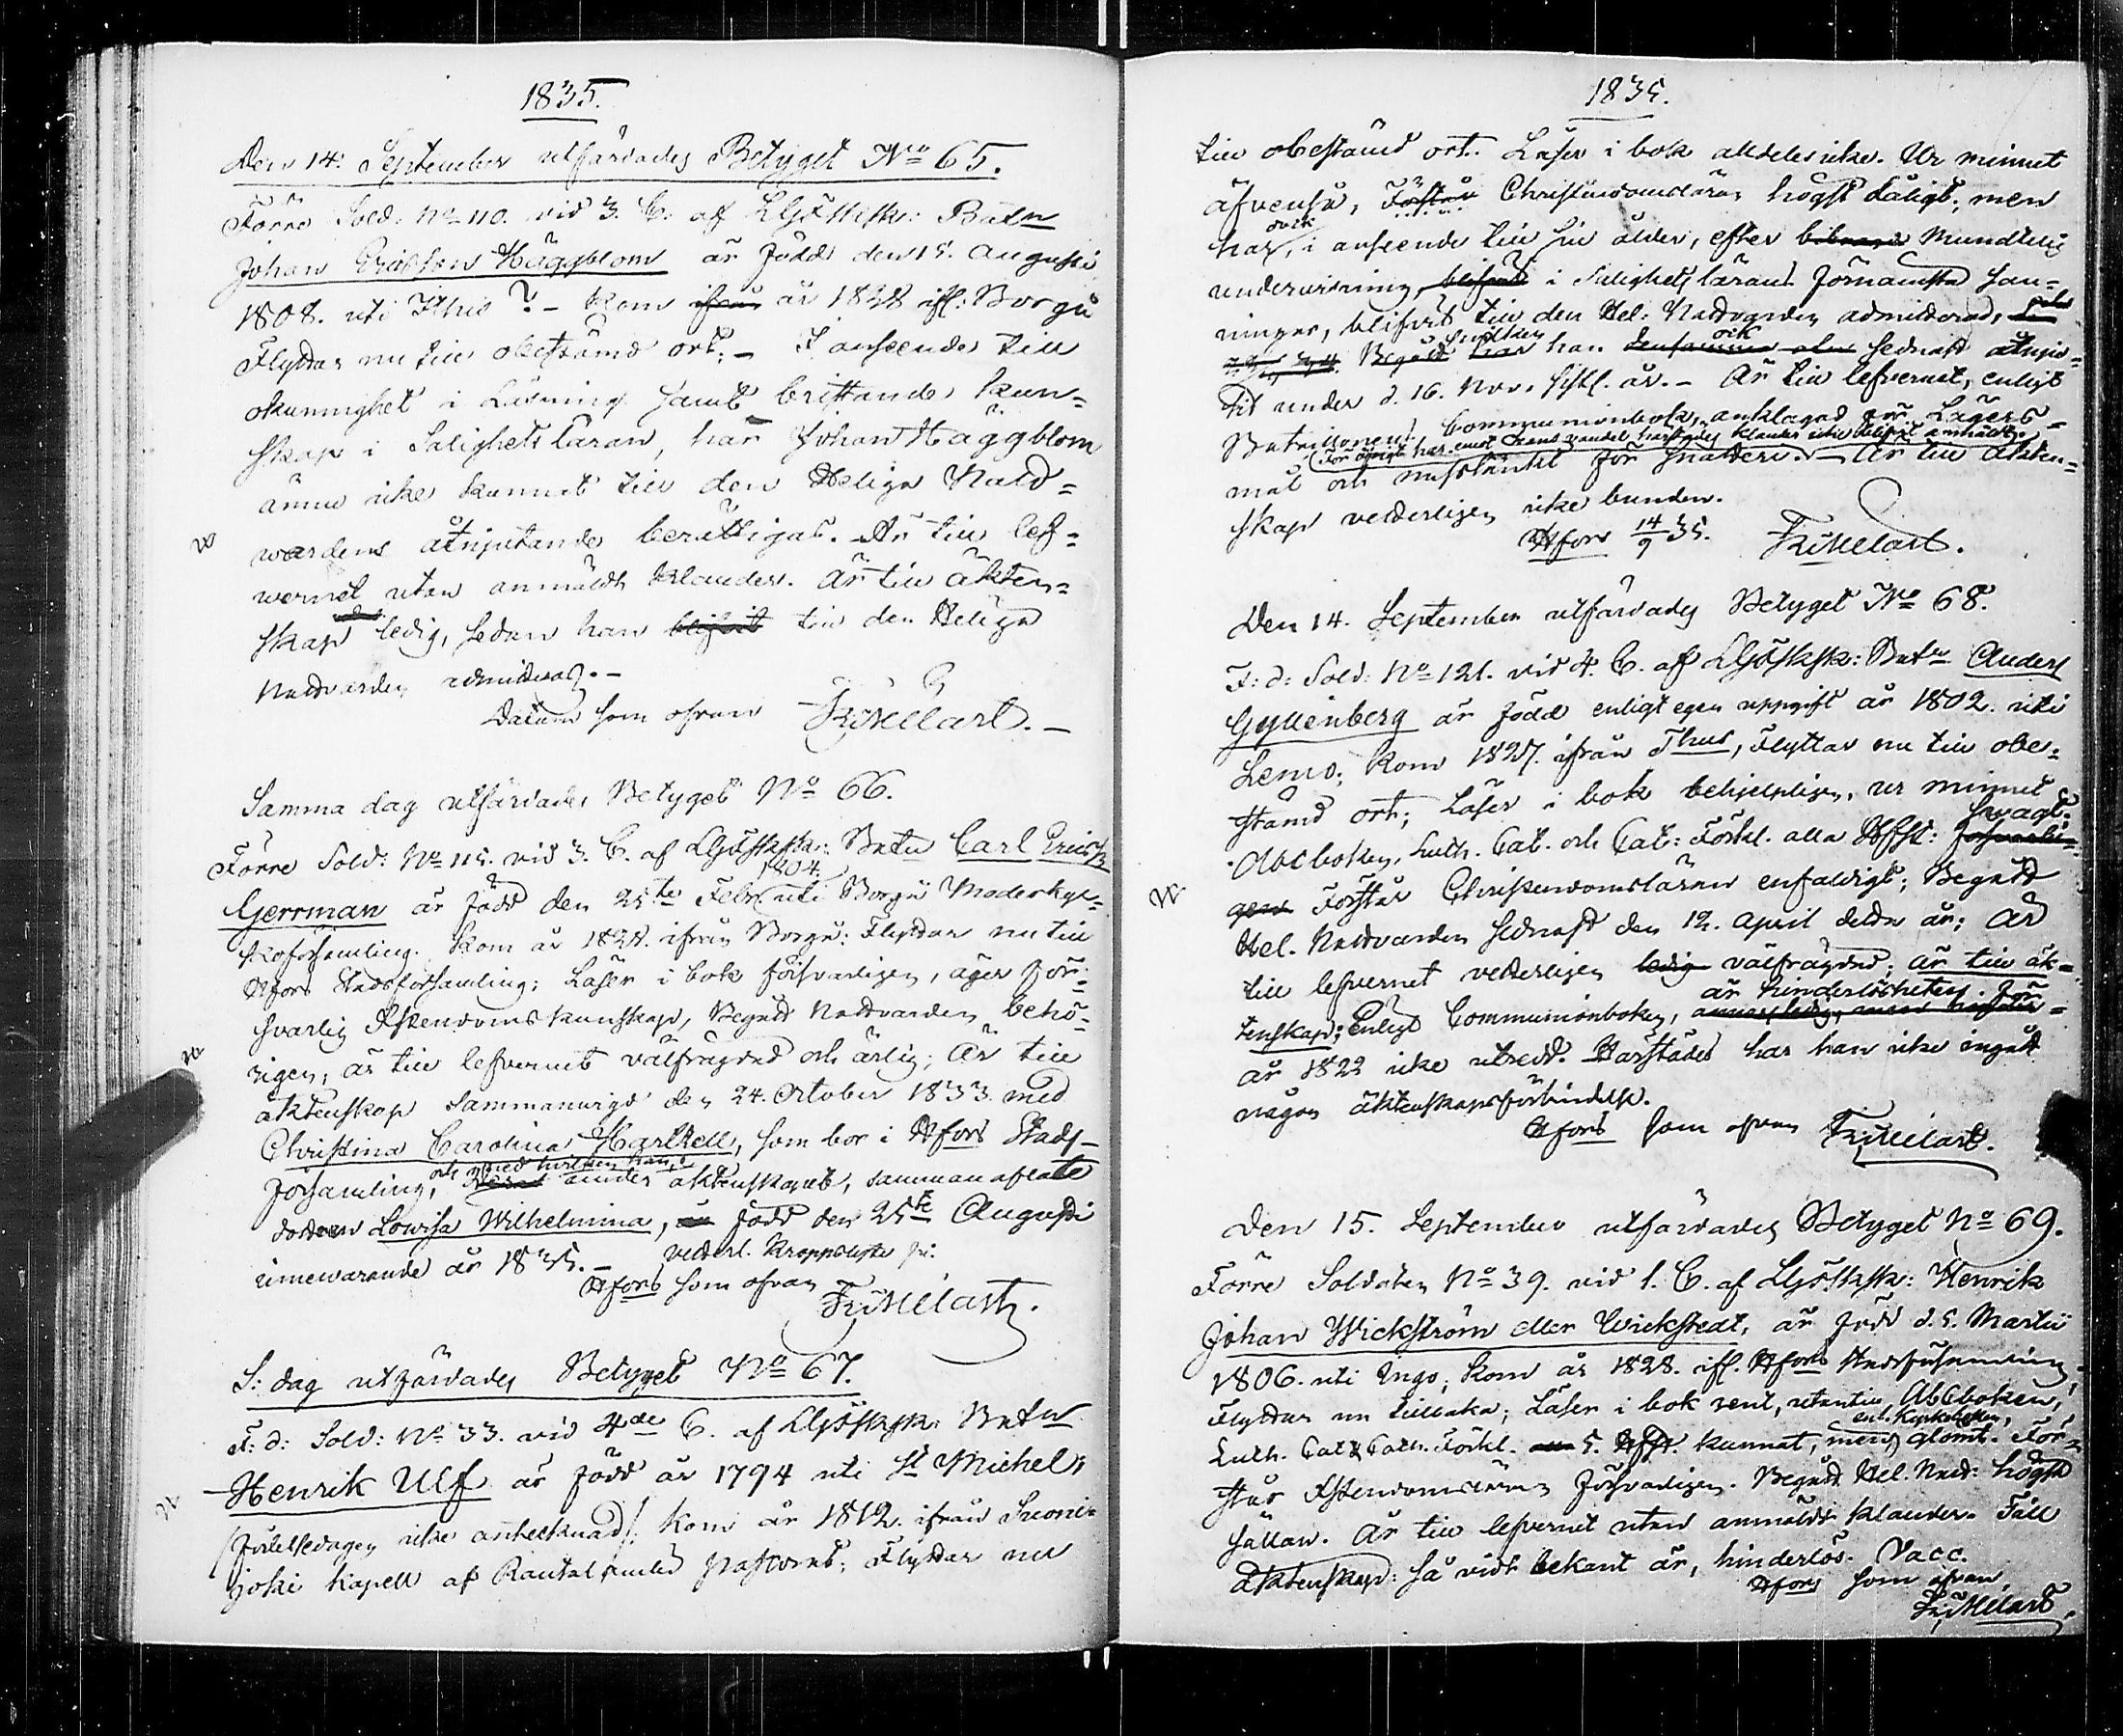 1835.
Den 14. September utfärdades Betyget No 65.
Förre Sold: No 110. vid 3. C. af LGSkSk: Batn
Johan Ericsson Häggblom är född den 15. Augusti
1808. uti Ithis? - Kom ifrån år 1828 ifl: Borgå
Flyttar nu till obestämd ort; - I anseende till
okunnighet i Läsning samt bristande kun=
skap i Salighets läran, har Johan Häggblom
ännu icke kunnat till den Heliga Natt=
wardens åtnjutande berättigas. Är till lef=
wernet utan anmäldt klander. Är till äkten=
skap ledig, sedan han blifvit till den Heliga
Nattvarden admitteras. -
Datum som ofvan FrMellart. -
Samma dag utfärdades Betyget No 66.
Förre Sold: No 115. vid 3. C. af LGSkSk: Batn Carl Ericss
1804.
Gerrman är född den 25te Febr uti Borgå Moderkyr=
koförsamling. Kom år 1828. ifrån Borgå: Flyttar nu till
Hfors Stadsförsamling; Läser i bok försvarligen, äger för=
svarlig Xstendoms kunskap, Begått Nattvarden behö=
rigen, är till lefvernet välfrägdad och ärlig; Är till
äktenskap Sammanvigd den 24. October 1833 med
Christina Carolina Harlkell, som bor i Hfors Stads-
och med hvilken han, i
församling, under äktenskapet, sammanaflat
dottren Lowisa Wilhelmina, född den 25te Augusti
innewarande år 1835. - vederl. Kroppslyte fri.
Hfors som ofvan
FrMellart.
S: dag utfärdades Betyget No 67.
F: d: Sold: No 33. vid 4de C. af LGSkSk: Batn
Henrik Ulf är född år 1794 uti St Michels
(födelsedagen icke antecknad). Kom år 1812. ifrån Suoni=
joki Kapell af Rautalambi pastorat; Flyttar nu
1835.
till obestämd ort. Läser i bok alldeles icke. Ur minnet
äfvenså, Förstår Christendomsläran högst dåligt; men
dock
har, i anseende till sin ålder, efter Mundtelig
undervisning, blifvit i Salighets lärans förnämsta san=
ningar, blifvit till den Hel: Nattvarden admitterad,
Begått har han sednast åtnju=
tit under d. 16. Nov. sistl. år. - Är till lefvernet, enligt
Bataillonens Communionbok, anklagad för Lägers=
För öfrigt har emot hans vandel härstädes klander icke blifvit anmäldt.
mål och misstänkt för snatteri. - Är till äkten=
skap vetterligen icke bunden.
Hfors 14/9 35. FrMellart.
Den 14. September utfärdades Betyget No 68.
F: d: Sold: No 121. vid 4. C. af LGSkSk: Batn Anders
Gyllenberg är född enligt egen uppgift år 1802. uti
Lemo; Kom 1827. ifrån Thus, Flyttar nu till obe=
stämd ort; Läser i bok behjelpligen, ur minnet
svagt:
Abcboken, Luth. Cat. och Cat: Förkl. alla Hfst: försvarli=
gen Förstår Christendomsläran enfaldigt; Begått
Hel. Nattvarden sednast den 12. April detta år; Är
till lefvernet vetterligen ledig välfrägdad; är till äk=
är hinderlösheten för
tenskap; Enligt Communionboken,
år 1822 icke utredd. Härstädes har han icke ingått
någon äktenskapsförbindelse.
Hfors som ofvan FrMellart.
Den 15. September utfärdades Betyget No 69.
Förre Soldaten No 39. vid 1. C. af LGSkSk: Henrik
Johan Wickström eller Wickstedt, är född d. 5. Martii
1806. uti Ingo; Kom år 1828. ifl. Hfors Stadsförsamling,
Flyttar nu tillbaka; Läser i bok rent, utantill Abcboken,
enl. Kyrkoboken,
Luth. Cat & Cath. Förkl. 5. Hfst. kunnat, men glömt. För=
står Xstendomsläran försvarligen. Begått Hel. Natt: högst
sällan. Är till lefvernet utan anmäldt klander. Till
äktenskap: så vidt bekant är, hinderlös. Vacc.
Hfors som ofvan,
FrMellart.